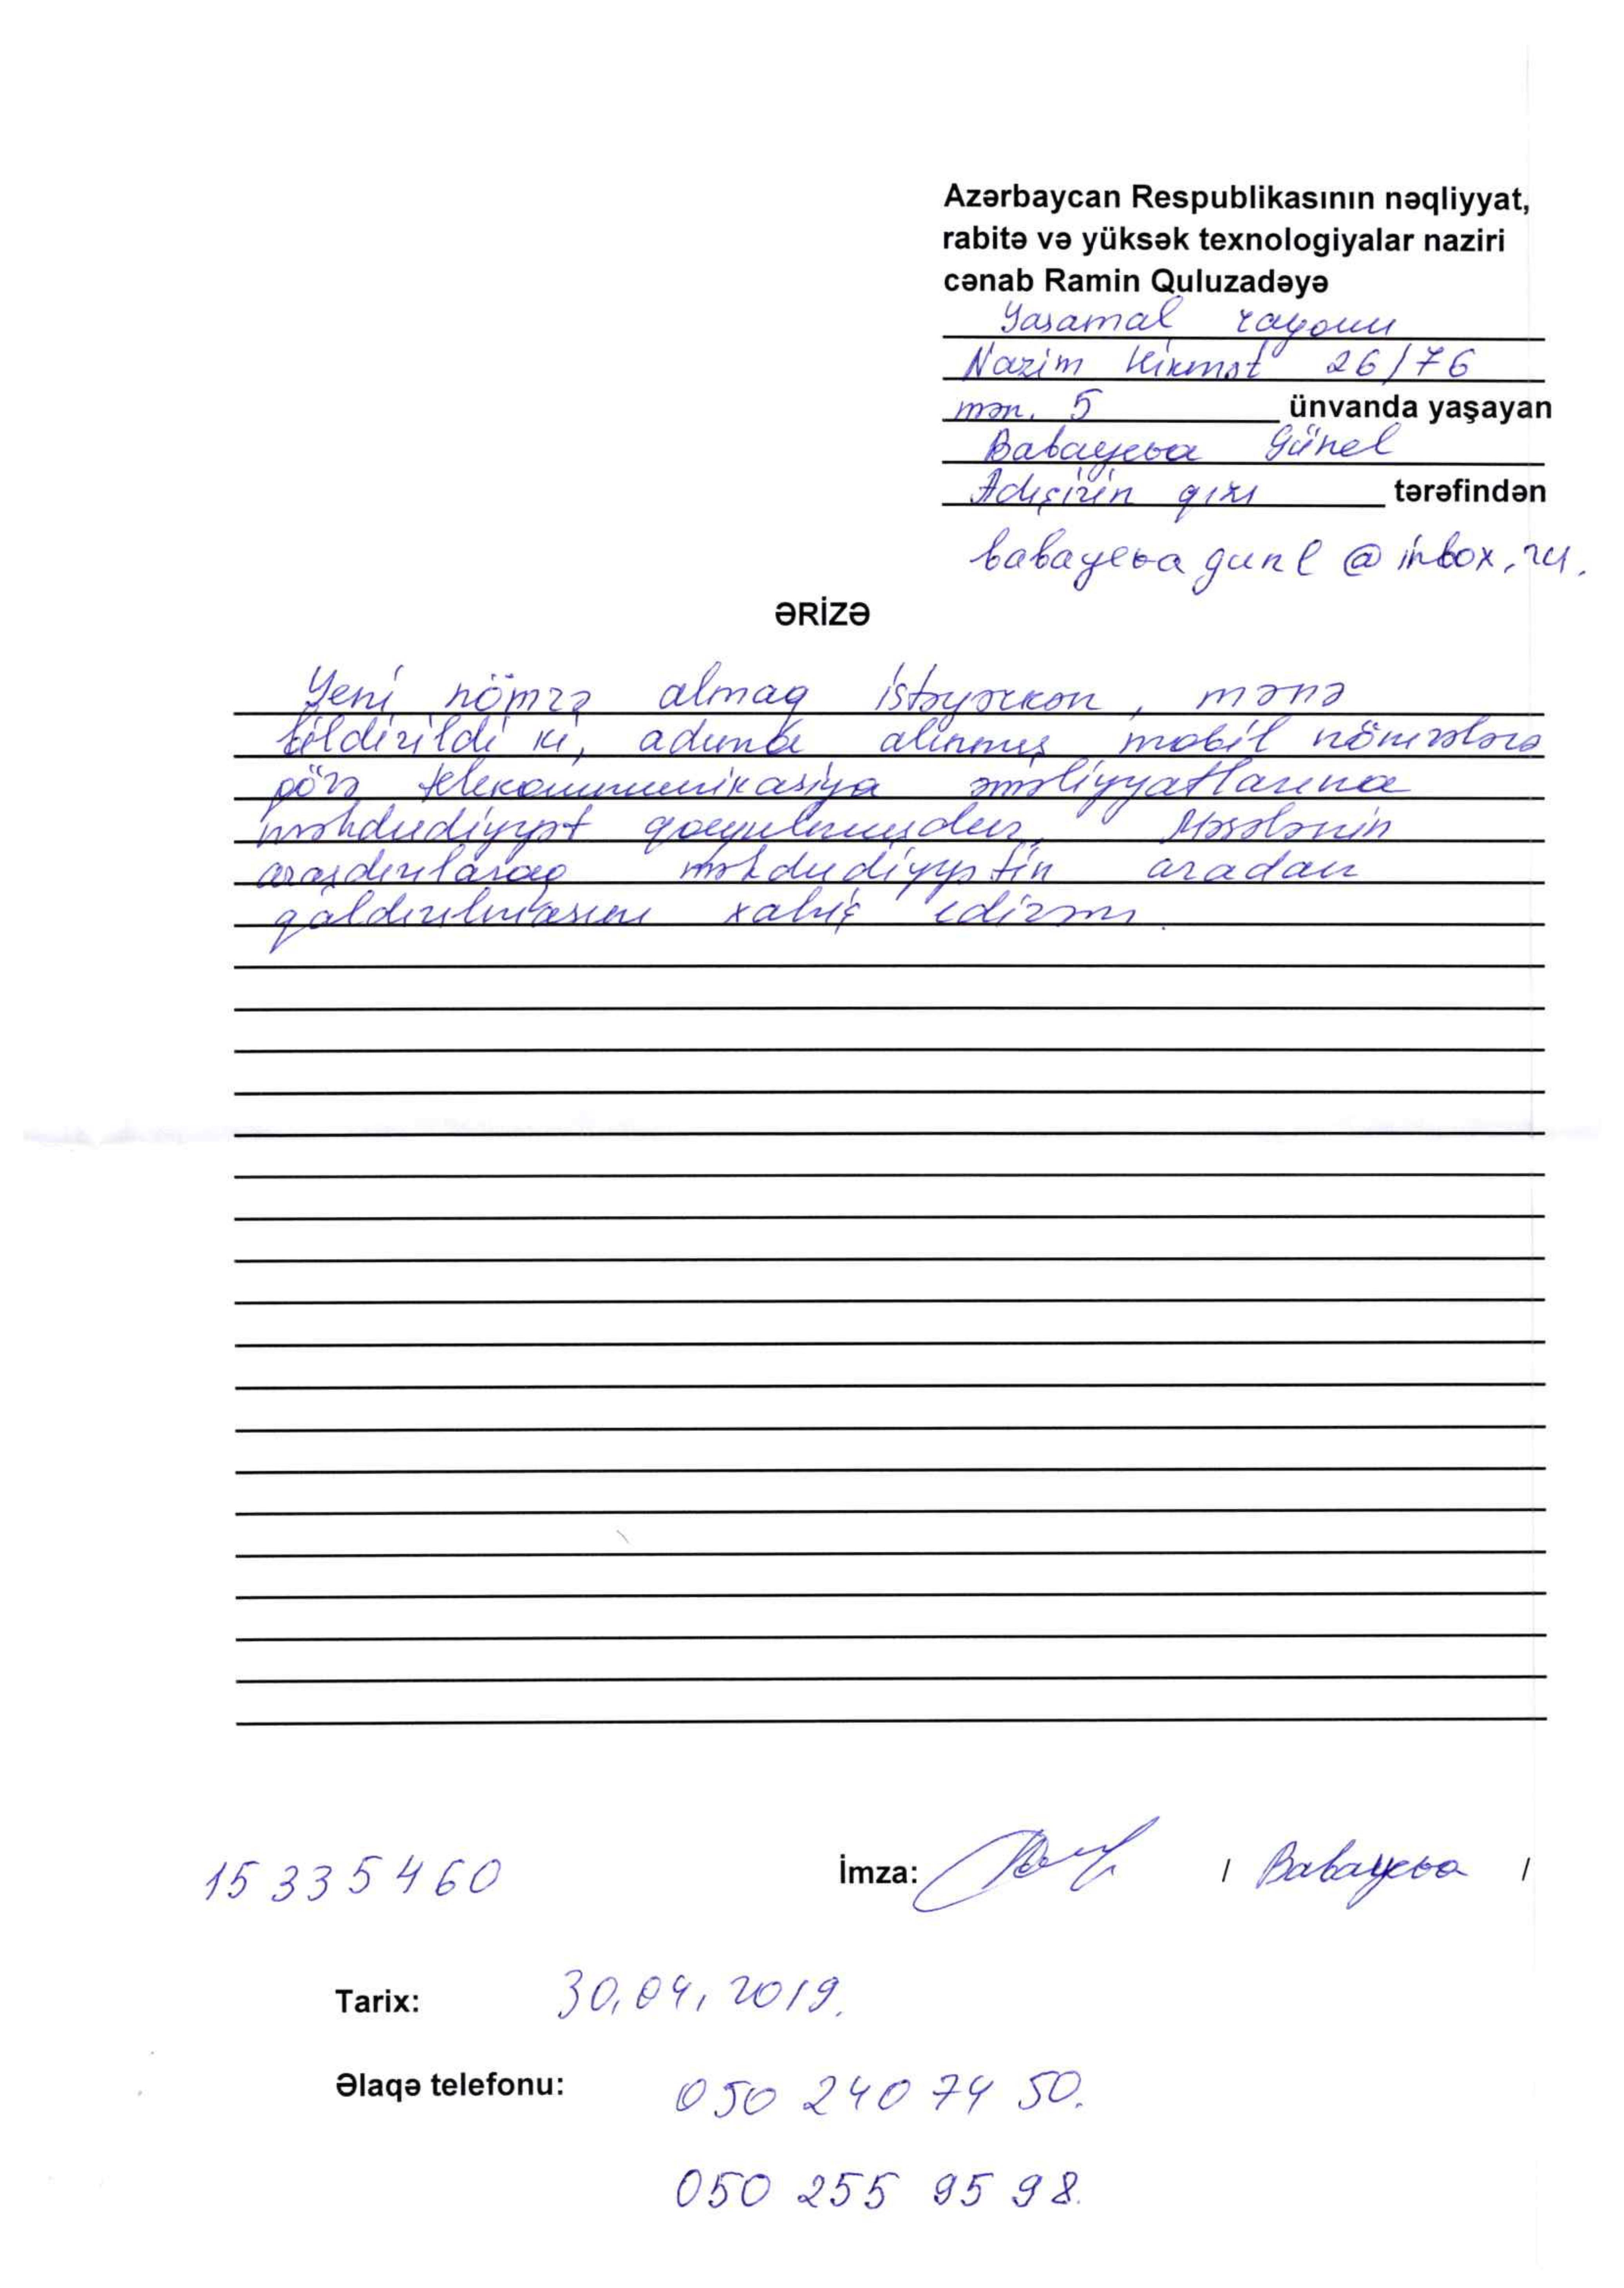 Azərbaycan Respublikasının nəqliyyat,
rabitə və yüksək texnologiyalar naziri
cənab Ramin Quluzadəyə
Yasamal rayonu
Nazim Hikmət 26/76
mən. 5 ünvanda yaşayan
Babayeva Günel
qızı tərəfindən
babayeva gunel @ inbox.ru.
ƏRİZƏ
Yeni nömrə almaq istəyərkən, mənə
bildirildi ki, adıma alınmış mobil nömrələrə
görə telekommunikasiya əməliyyatlarına
məhdudiyyət qoyulmuşdur. Məsələnin
araşdırılaraq məhdudiyyətin aradan
qaldırılmasını xahiş edirəm.
15335460 İmza: / Babayeva /
Tarix: 30.04.2019.
Əlaqə telefonu: 050 240 74 50.
050 255 95 98.